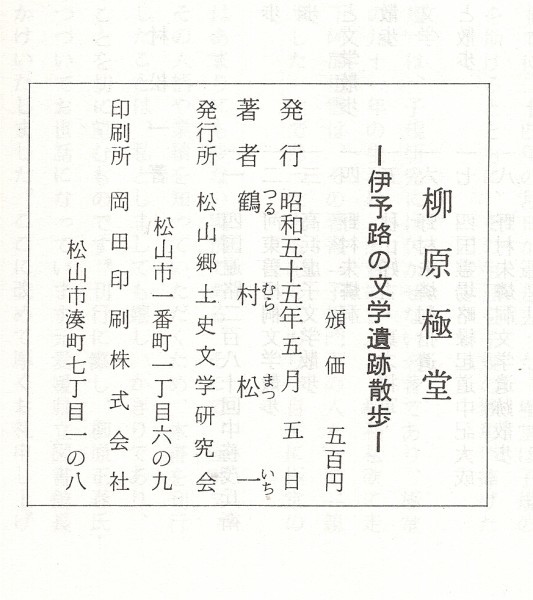 柳原極堂
ー伊予路の文学遺跡散歩ー
頒価 五百円
発行 昭和五十五年五月五日
著者 鶴村松一
つる むら まつ いち
発行所 松山郷土史文学研究会
松山市一番町一丁目六の九
印刷所 岡田印刷株式会社
松山市湊町七丁目一の八